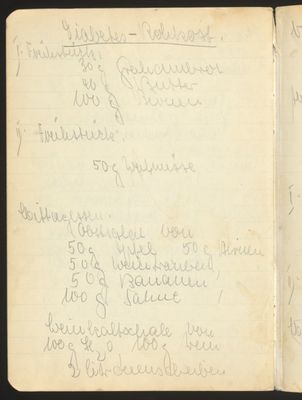 Diabetes-Rohkost.
I. Frühstück:
30 g Grahambrot
20 g Butter
100 g Birnen
II. Frühstück:
50 g Walnüsse
Mittagessen:
Obstsalat von
50 g Äpfel 50 g Birnen
50 g Weintrauben
50 g Bananen
100 g Sahne
von
100 g H2O 100 g Wein
2